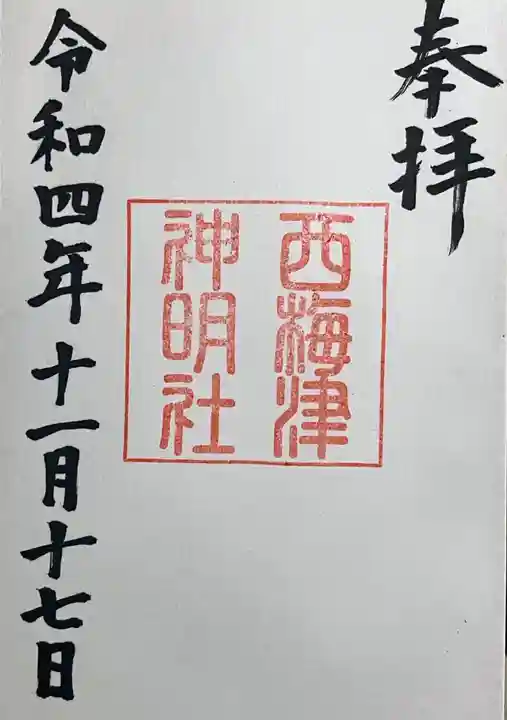 奉拝
西梅津
神明社
令和四年十一月十七日